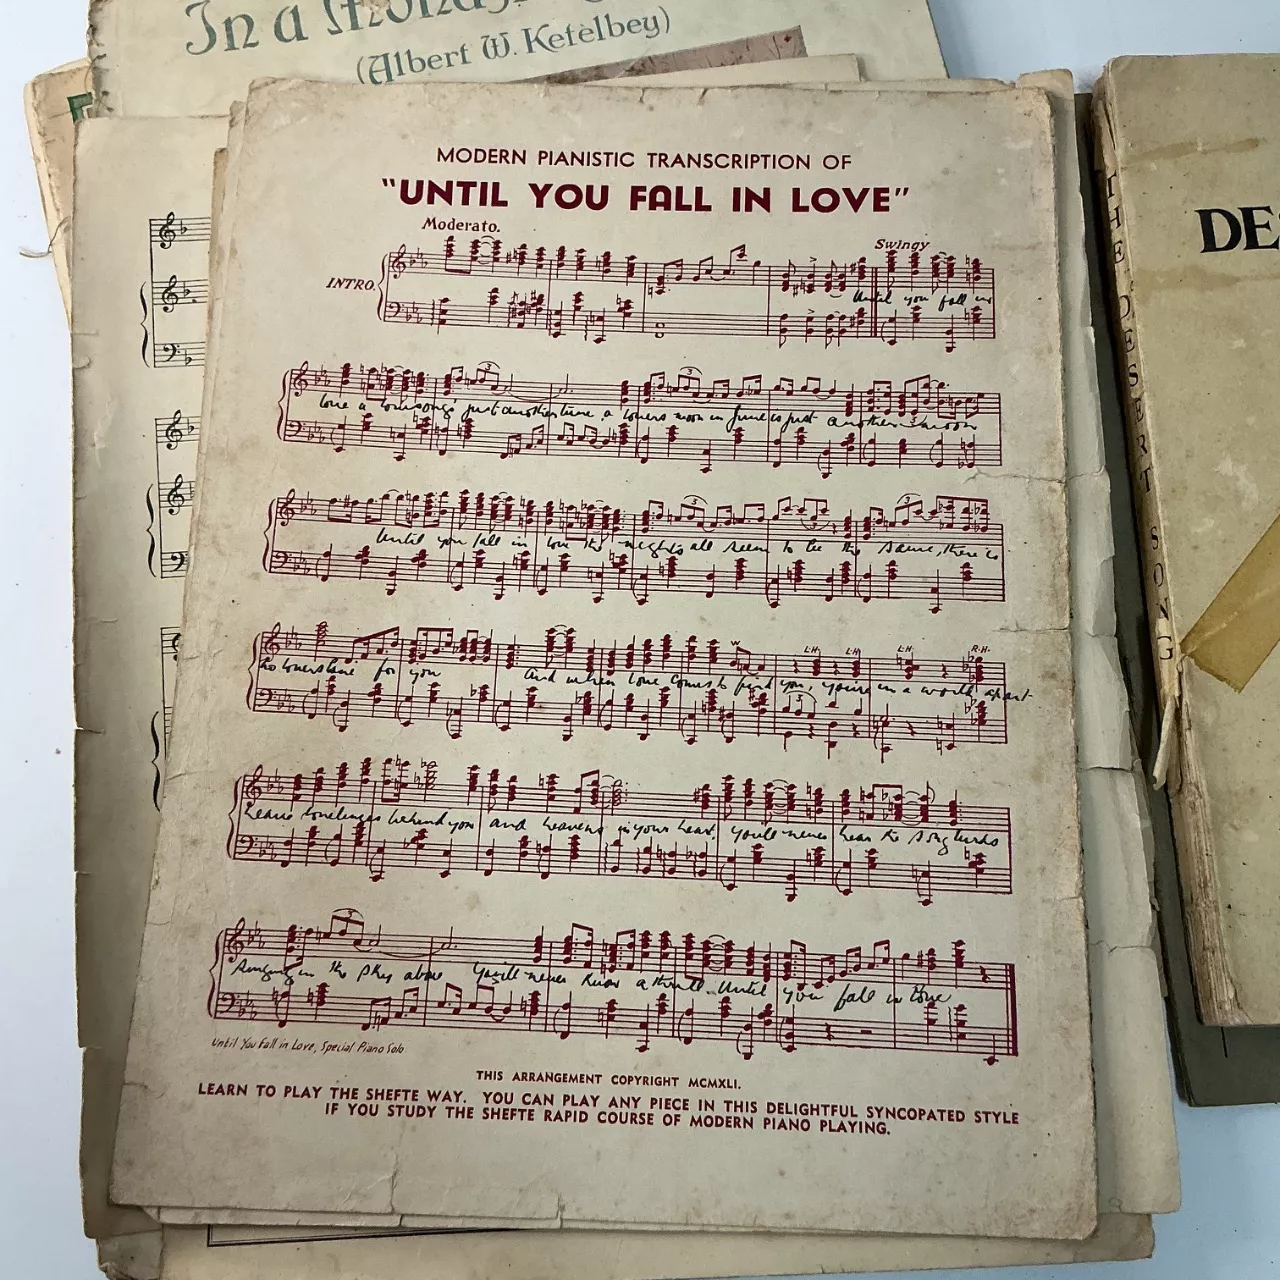 In a
(Albert W. Ketèlbey)
MODERN PIANISTIC TRANSCRIPTION OF
"UNTIL YOU FALL IN LOVE"
Moderato.
Swingy
INTRO.
Until you fall in
3
3
love a love song's just another tune a lovers moon in June is just another moon
3
3
Until you fall in love the nights all seem to be the same, there is
W
L.H.
L.H.
L.H.
R.H.
no lovers lane for you And when love comes to find you, youre in a world apart
3
leave loneliness behind you and heavens in your heart you'll never hear the song birds
3
Singing in the sky above You'll never know a thrill Until you fall in love
Until You Fall in Love, Special Piano Solo
THIS ARRANGEMENT COPYRIGHT MCMXLI.
LEARN TO PLAY THE SHEFTE WAY. YOU CAN PLAY ANY PIECE IN THIS DELIGHTFUL SYNCOPATED STYLE
IF YOU STUDY THE SHEFTE RAPID COURSE OF MODERN PIANO PLAYING.
THE DESERT SONG
DE